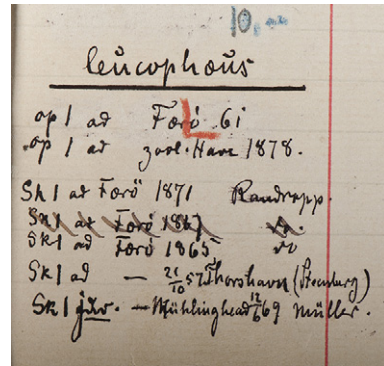 10,
leucophæus
op 1 ad Færö 61
L
op 1 ad zool. Have 1878.
Sk 1 ad Færö 1871 Randropp.
Sk 1 ad Færö 1867 do.
Sk 1 ad Færö 1865 do
Sk 1 ad — 21/10 57 Thorshavn ( )
Sk 1 juv. — 12/6 69 Müller.